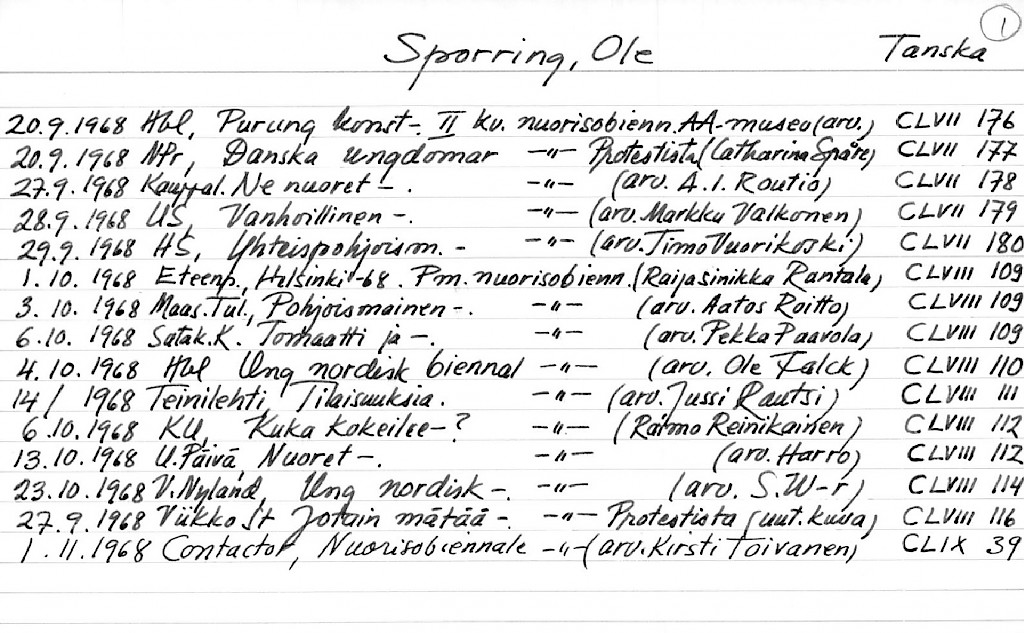 1
Sporring, Ole Tanska
20.9.1968 Hbl, Purung konst-. II kv. nuorisobienn. AA-museo (arv.) CLVII 176
20.9.1968 NPr, Danska ungdomar -"- Protestista (Catharina Spåre) CLVII 177
27.9.1968 Kauppal. Ne nuoret -. -"- (arv. A.I. Routio) CLVII 178
28.9.1968 US, Vanhoillinen -. -"- (arv. Markku Valkonen) CLVII 179
29.9.1968 HS, Yhteispohjoism. - -"- (arv. Timo Vuorikoski) CLVII 180
1.10.1968 Eteenp., Helsinki-68. Pm. nuorisobienn. (Raijasinikka Rantala) CLVIII 109
3.10.1968 Maas.Tul., Pohjoismainen -. -"- (arv. Aatos Roitto) CLVIII 109
6.10.1968 Satak.K. Tomaatti ja -. -"- (arv. Pekka Paavola) CLVIII 109
4.10.1968 Hbl Ung nordisk biennal -"- (arv. Ole Falck) CLVIII 110
14/ 1968 Teinilehti, Tilaisuuksia. -"- (arv. Jussi Rautsi) CLVIII 111
6.10.1968 KU, Kuka kokeilee -? -"- (Raimo Reinikainen) CLVIII 112
13.10.1968 U.Päivä, Nuoret -. -"- (arv. Harro) CLVIII 112
23.10.1968 V.Nyland, Ung nordisk -. -"- (arv. S.W-r) CLVIII 114
27.9.1968 Viikko st Jotain mätää -. -"- Protestista (uut. kuva) CLVIII 116
1.11.1968 Contactor, Nuorisobiennale -"- (arv. Kirsti Toivanen) CLIX 39